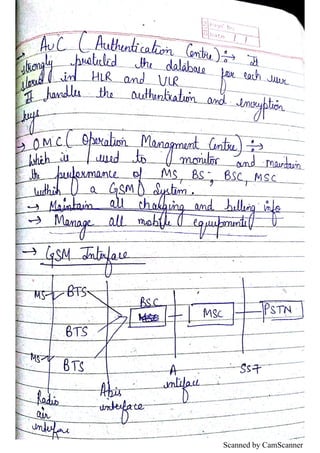 → AUC (Authentication Centre) :→ It
strongly protected the database for each user
stored in HLR and VLR
It handles the authentication and encryption
keys
→ O.M.C (Operation Managment Centre) :→
which is used to monitor and maintain
the performance of MS, BS, BSC, MSC
within a GSM System.
→ Maintain all charging and billing info
→ Manage all mobile equipments
→ GSM Interface
MS BTS
BSC
MSC
PSTN
BTS
MS BTS
A
interface
SS7
Abis
interface
Radio
air
interface
Scanned by CamScanner